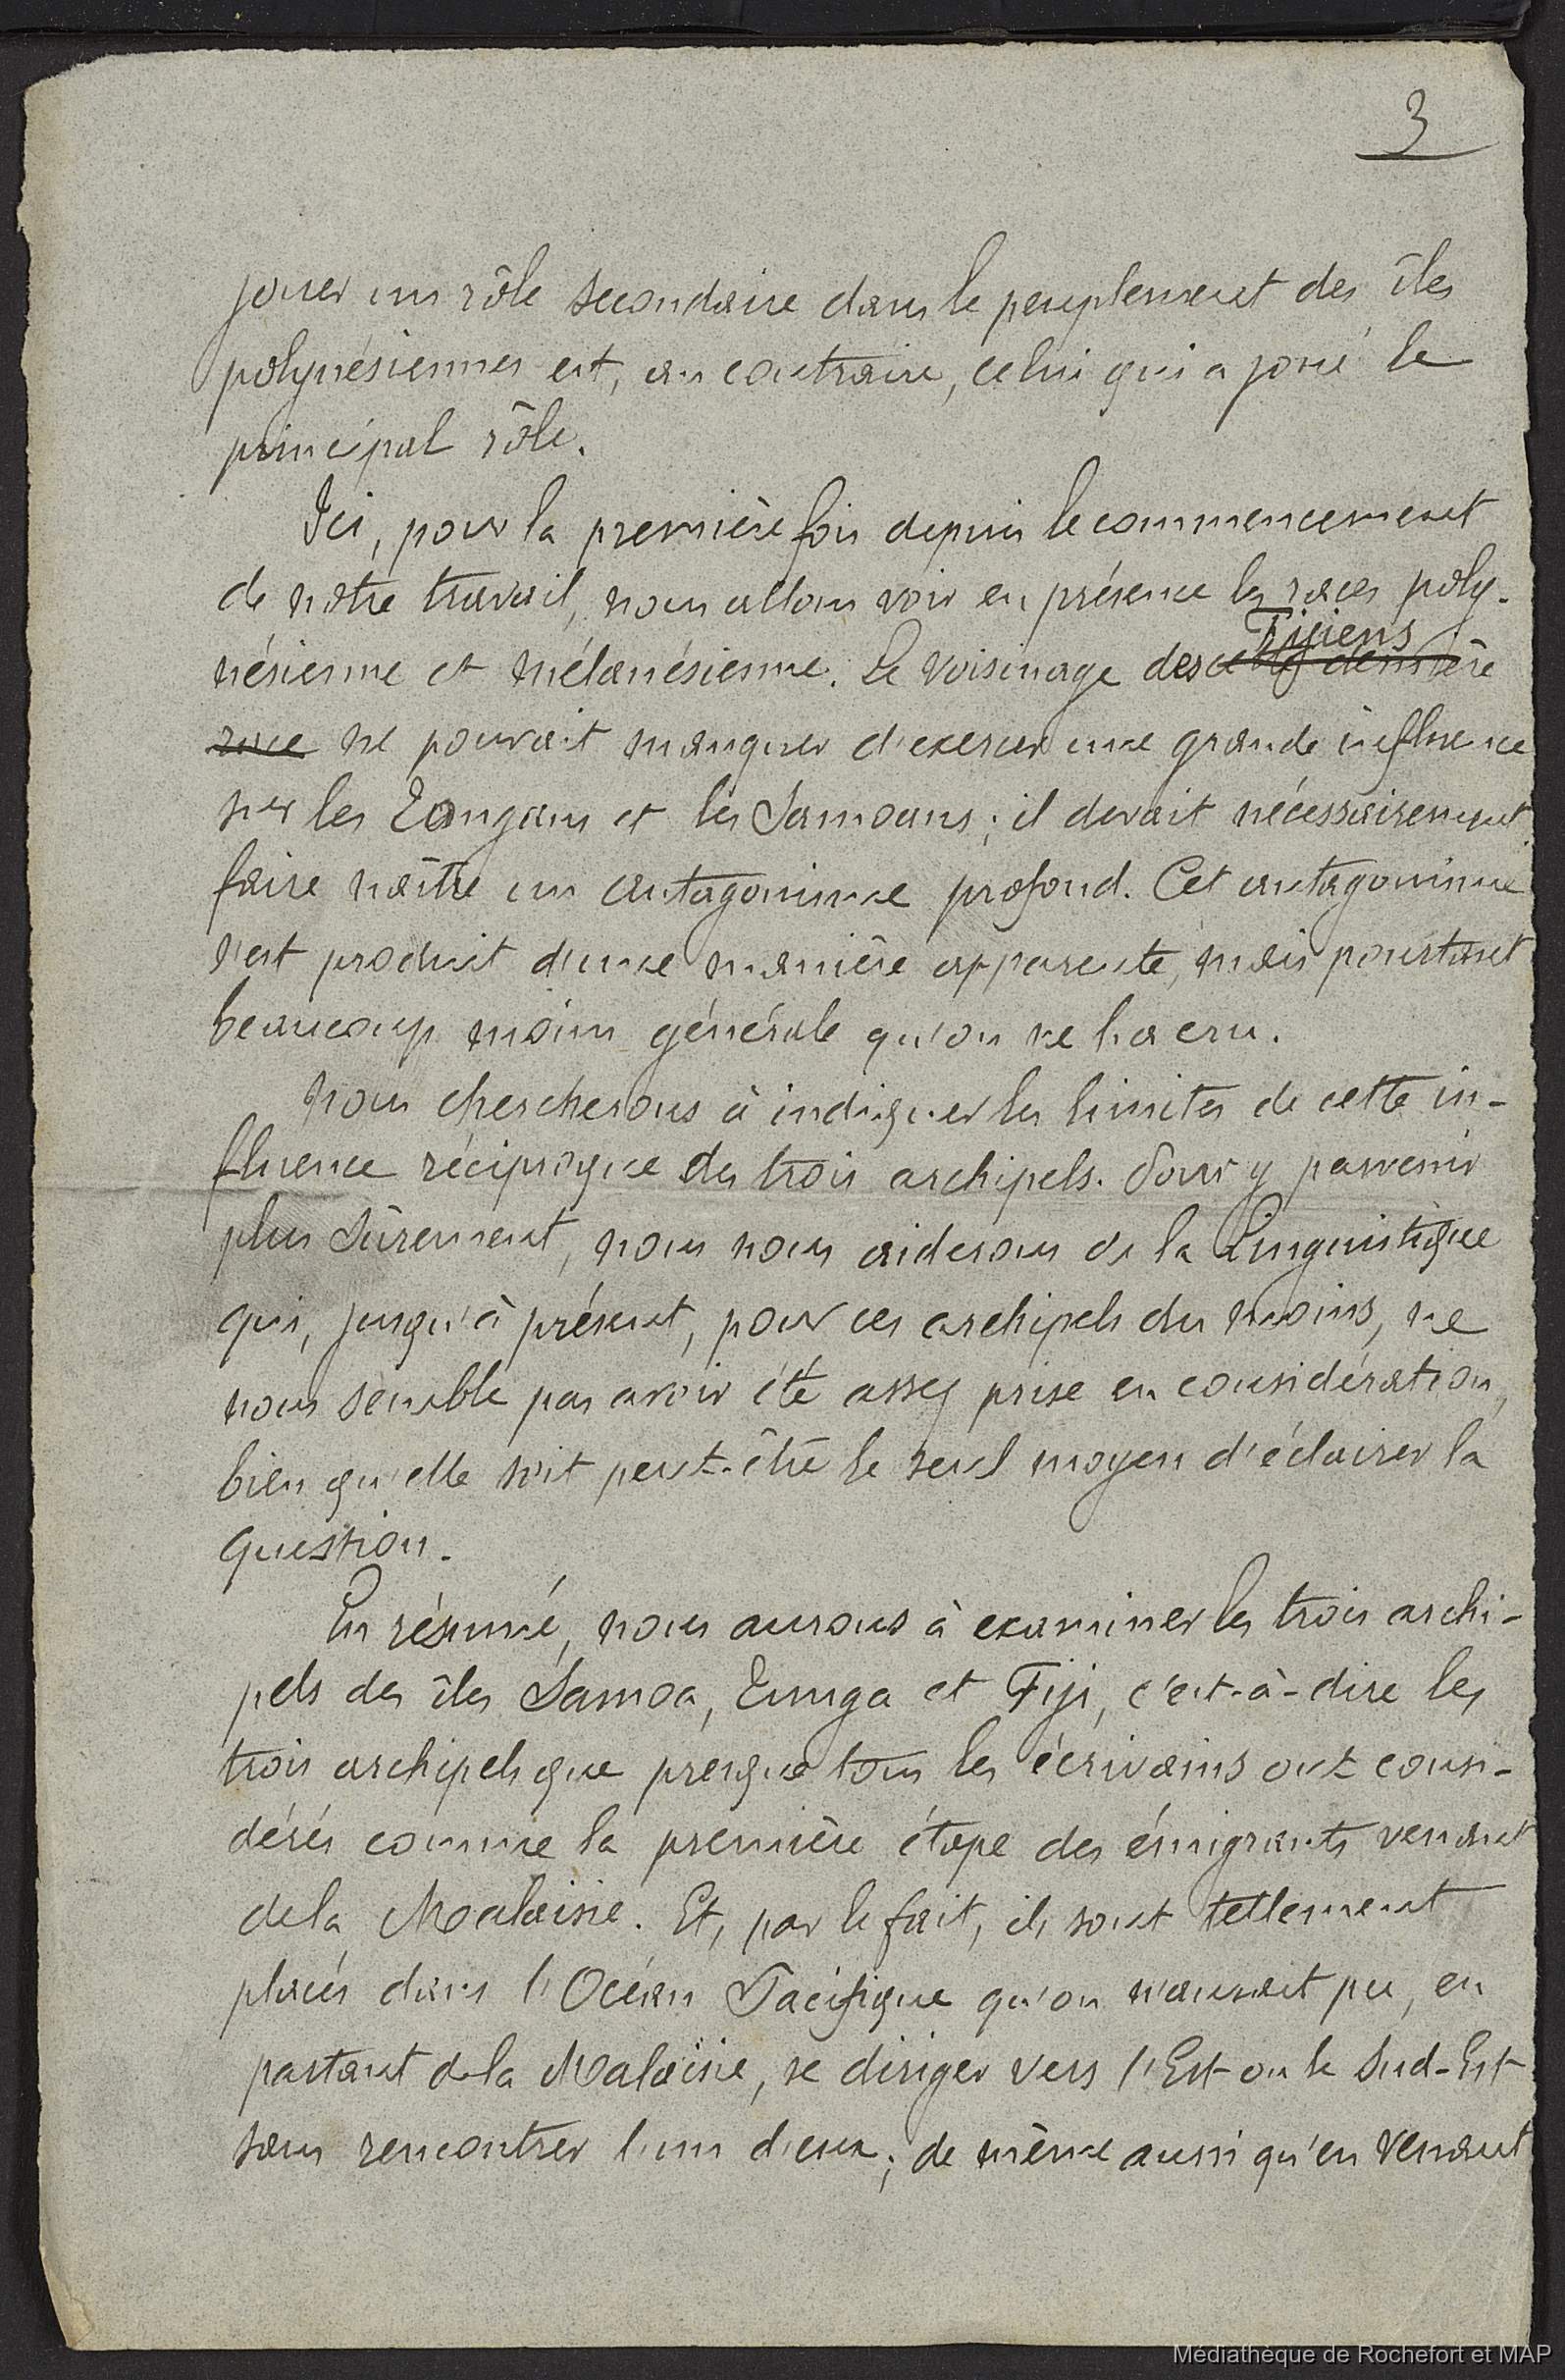 3
jouer un rôle secondaire dans le peuplement des îles
polynésiennes est, au contraire, celui qui a joué le
principal rôle.
Ici, pour la première fois depuis le commencement
de notre travail, nous allons voir en présence les races poly-
Fijiens
nésienne et mélanésienne. Le voisinage des cette dernière
race ne pouvait manquer d'exercer une grande influence
sur les Tongans et les Samoans ; il devait nécessairement
faire naître un antagonisme profond. Cet antagonisme
s'est produit d'une manière apparente, mais pourtant
beaucoup moins générale qu'on ne l'a cru.
Nous chercherons à indiquer les limites de cette in-
fluence réciproque des trois archipels. Pour y parvenir
plus sûrement, nous nous aiderons de la Linguistique
qui, jusqu'à présent, pour ces archipels du moins, ne
nous semble pas avoir été assez prise en considération,
bien qu'elle soit peut-être le seul moyen d'éclairer la
question.
En résumé, nous aurons à examiner les trois archi-
pels des îles Samoa, Tunga et Fiji, c'est-à-dire les
trois archipels que presque tous les écrivains ont consi-
dérés comme la première étape des émigrants venant
de la Malaisie. Et, par le fait, ils sont tellement
placés dans l'Océan Pacifique qu'on n'aurait pu, en
partant de la Malaisie, se diriger vers l'Est ou le Sud-Est
sans rencontrer l'un d'eux ; de même aussi qu'en venant
Médiathèque de Rochefort et MAP